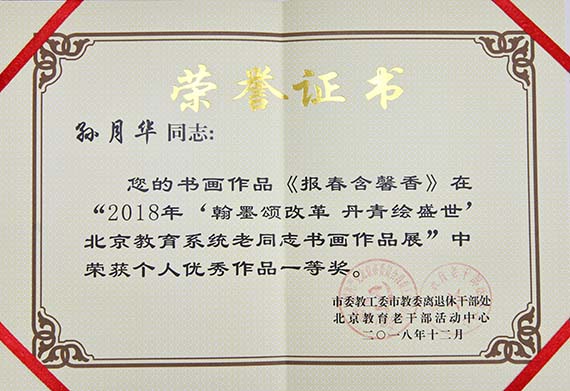 荣誉证书
孙月华同志:
您的书画作品《报春含馨香》在
“2018年‘翰墨颂改革 丹青绘盛世’
北京教育系统老同志书画作品展”中
荣获个人优秀作品一等奖。
市委教工委市教委离退休干部处
北京教育老干部活动中心
二〇一八年十二月